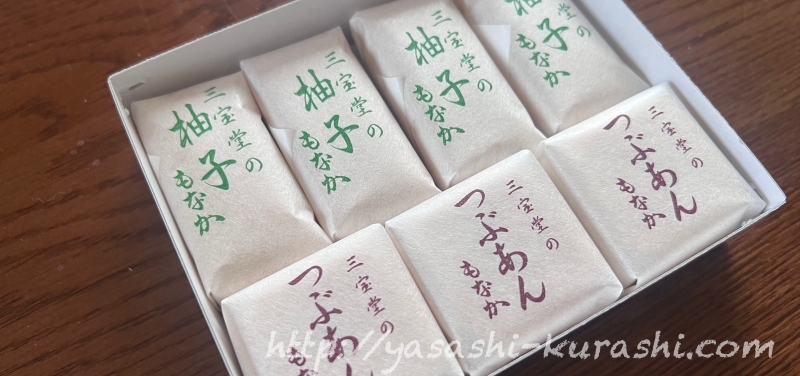 三宝堂の
柚子
もなか
三宝堂の
柚子
もなか
三宝堂の
柚子
もなか
三宝堂の
柚子
もなか
三宝堂の
つぶあん
もなか
三宝堂の
つぶあん
もなか
三宝堂の
つぶあん
もなか
http://yasashi-kurashi.com